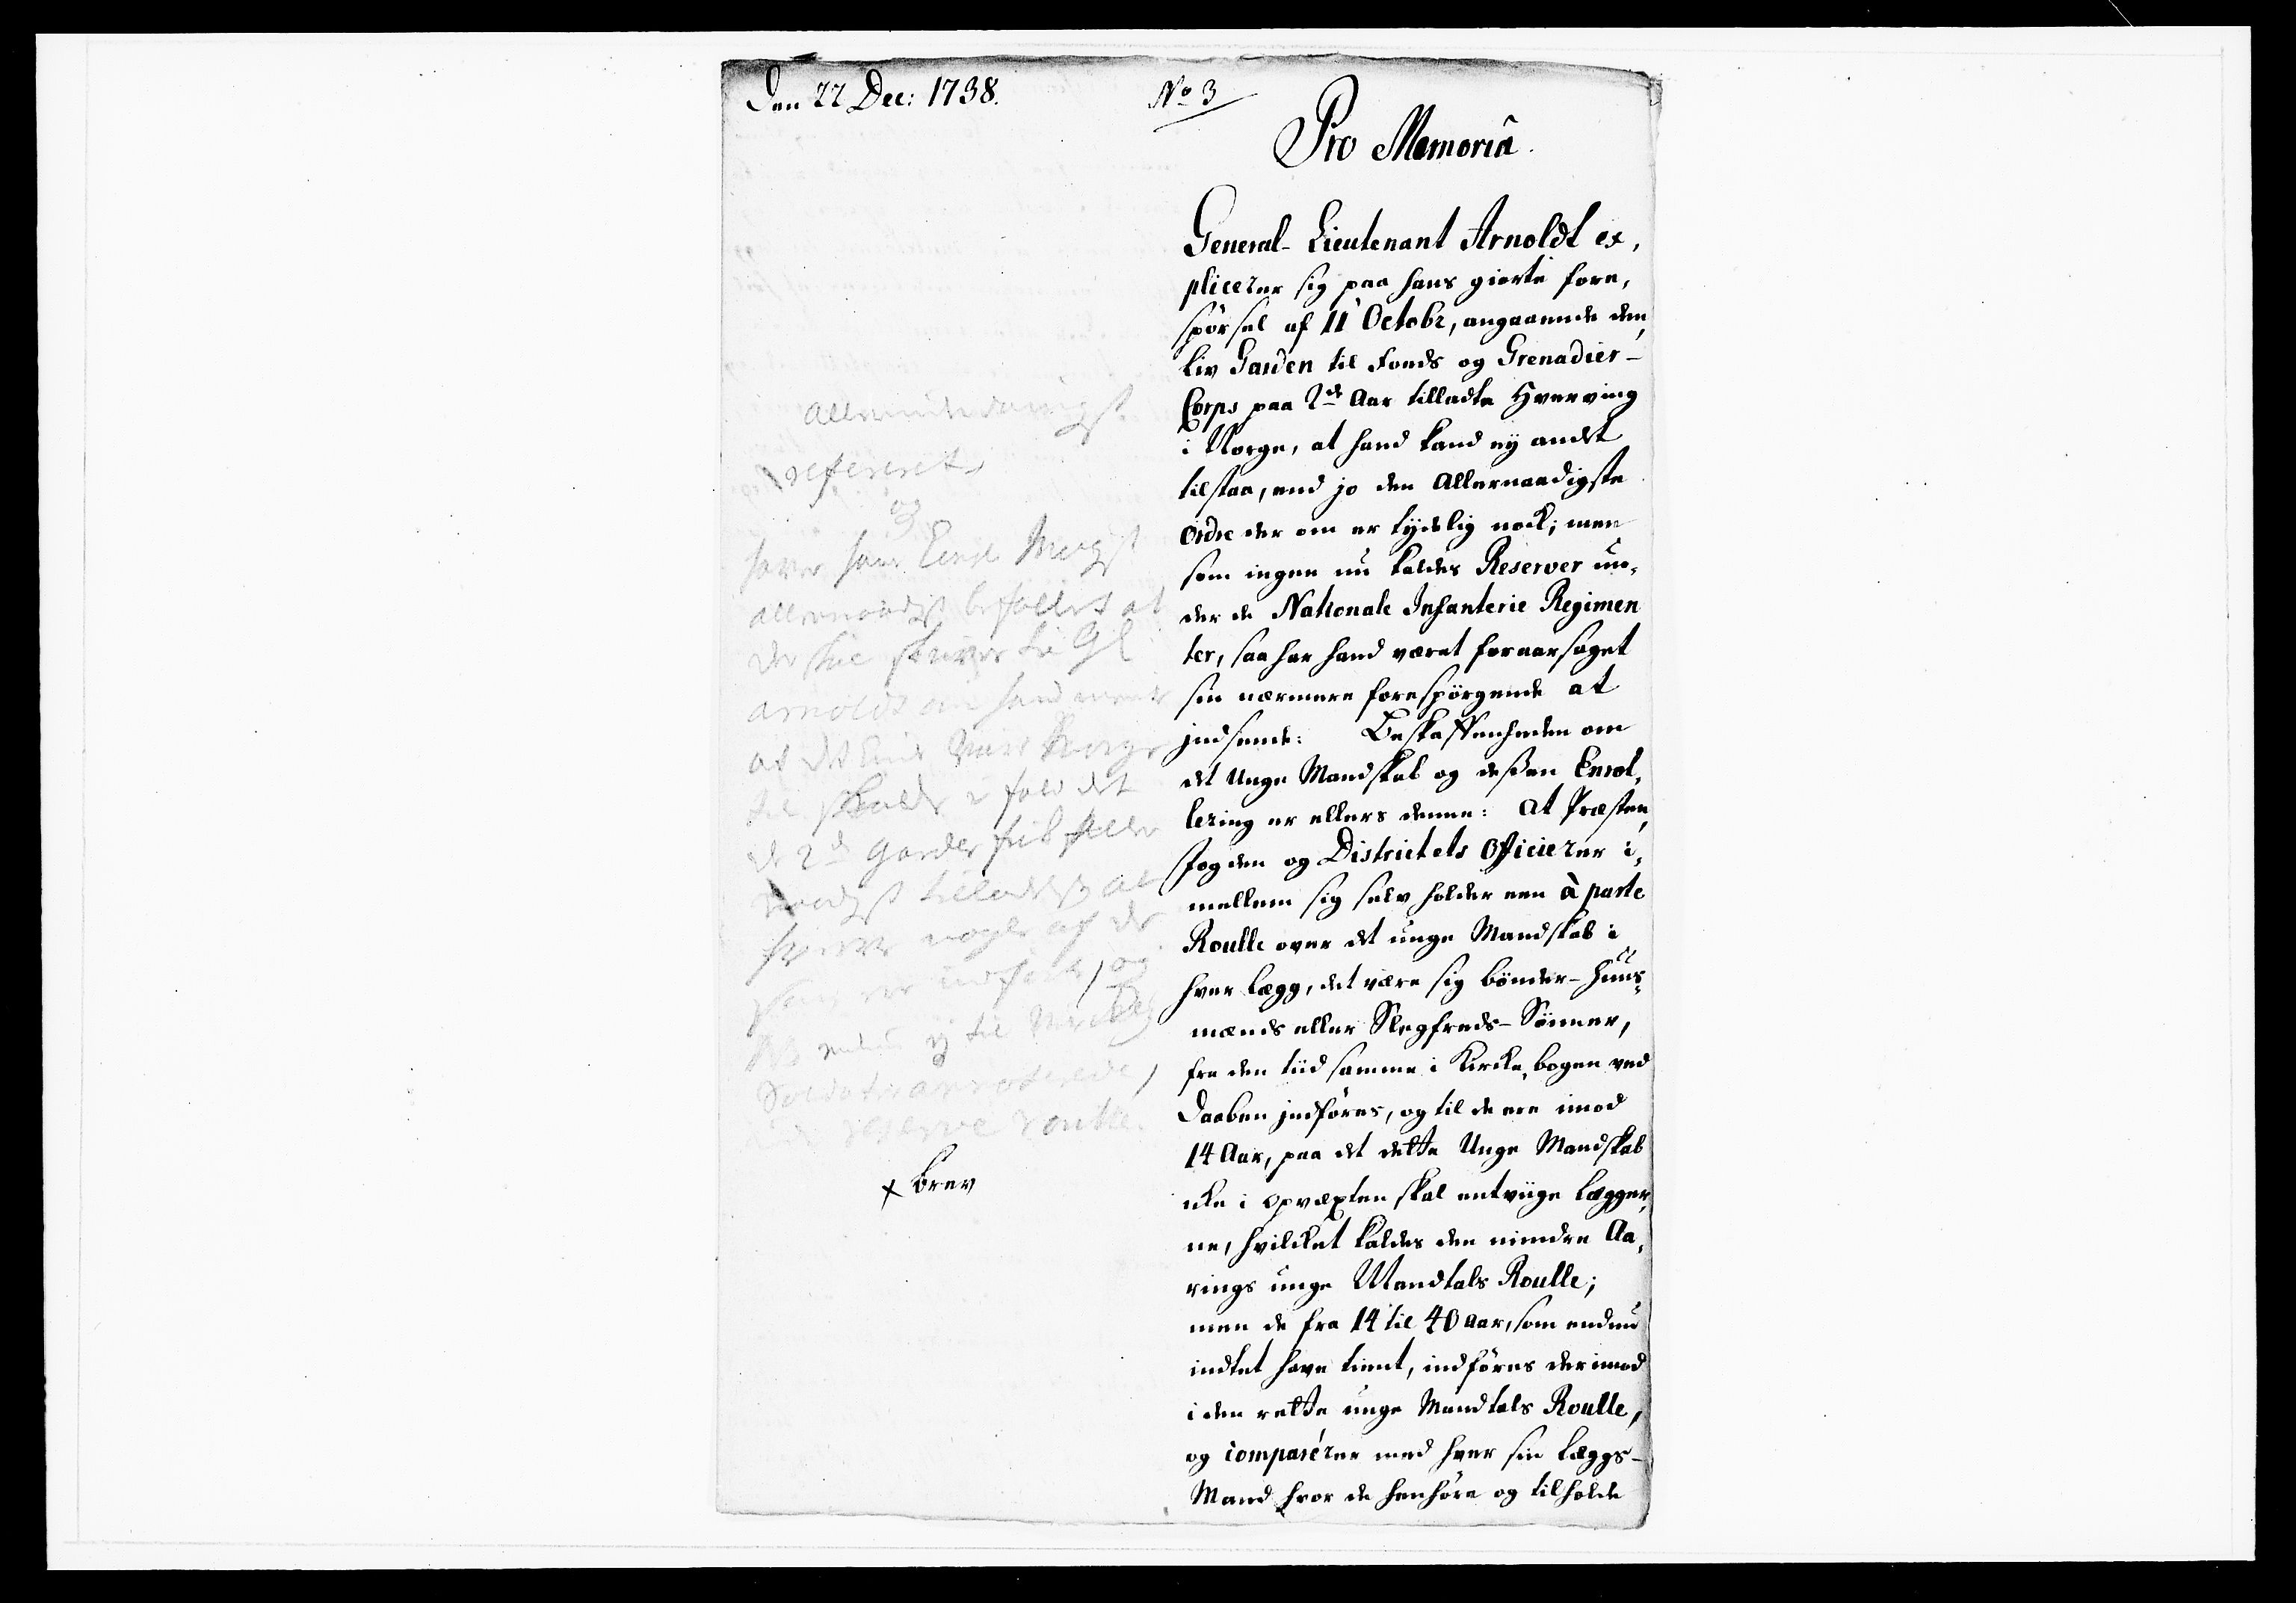 Den 22 Dec: 1738.
No 3
Pro Memoriâ.
General-Lieutenant Arnoldt ex,
plicerer sig paa hans giorte fore,
spørsel af 11 Octobr, angaaende den
Liv Garden til Fods og Grenadier-
Corps paa 2de Aar tilladte Hverving
i Norge, at hand kand ej andet
tilstaa, end jo den Allernaadigste
Ordre der om er tydelig nock; men
som ingen nu kaldes Reserver un,
der de Nationale Infanterie Regimen
ter, saa har hand været foraarsaget
sin nærmere forespørgende at
jndsende: Beskaffenheden om
det Unge Mandskab og dessen Enrol,
lering er ellers denne: At Præsten,
Fogden og Districtets Officierer i,
mellem sig selv holder een à parte
Roulle over det unge Mandskab i
hver Lægg, det være sig bønder-Huus,
mænds eller Slegfreds-Sønner,
fra den tiid samme i Kircke,bogen ved
Daaben jndføres, og til de ere imod
14 Aar, paa det dette Unge Mandskab
icke i Opvæxten skal entviige Lægger,
ne, hvilcket kaldes den mindre Aa,
rings unge Mandtals Roulle;
men de fra 14 til 40 Aar, som endnu
indtet have tient, indføres derimod
i den rette unge Mandtals Roulle,
og comparérer med hver sin Læggs-
Mand hvor de henhøre og tilholde
Allerunderdanigst
refereret,
og
haver hans Kongl Mayst
allernaadigst befallet at
der skal skrives til Gl
Arnoldt om hand meente
at det
til i fald det
de 2de Garder
tilladt at
nogle af de
som ere indførte, og
ej til
Soldater
reserve roulle.
x brev